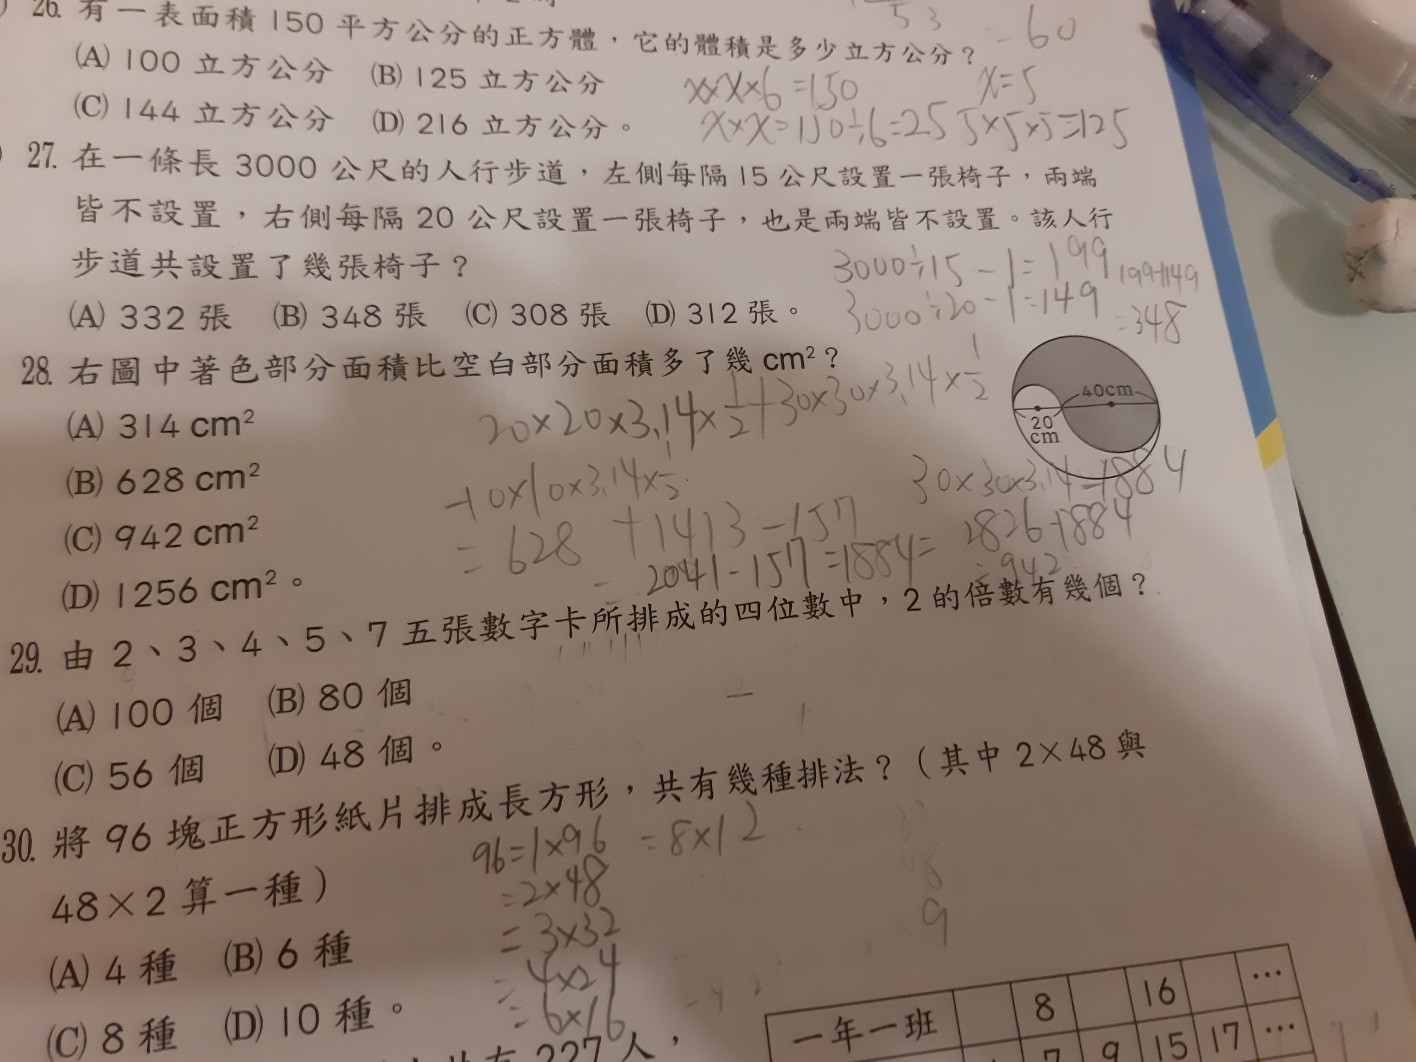 26. 有一表面積 150 平方公分的正方體，它的體積是多少立方公分？
(A) 100 立方公分 (B) 125 立方公分
(C) 144 立方公分 (D) 216 立方公分。
x×x×6=150
x=5
x×x=150÷6=25 5×5×5=125
27. 在一條長 3000 公尺的人行步道，左側每隔 15 公尺設置一張椅子，兩端
皆不設置，右側每隔 20 公尺設置一張椅子，也是兩端皆不設置。該人行
步道共設置了幾張椅子？
(A) 332 張 (B) 348 張 (C) 308 張 (D) 312 張。
3000÷15-1=199
3000÷20-1=149
199+149
=348
28. 右圖中著色部分面積比空白部分面積多了幾 cm²？
(A) 314 cm²
(B) 628 cm²
(C) 942 cm²
(D) 1256 cm²。
40cm
20
cm
20×20×3.14×1/2+30×30×3.14×1/2
-10×10×3.14×1/2
=628+1413-157
=2041-157=1884
30×30×3.14-1884
=2826-1884
=942
29. 由 2、3、4、5、7 五張數字卡所排成的四位數中，2 的倍數有幾個？
(A) 100 個 (B) 80 個
(C) 56 個 (D) 48 個。
30. 將 96 塊正方形紙片排成長方形，共有幾種排法？（其中 2×48 與
48×2 算一種）
(A) 4 種 (B) 6 種
(C) 8 種 (D) 10 種。
96=1×96 =8×12
=2×48
=3×32
=4×24
=6×16
227 人，
一年一班 8 16 …
7 9 15 17 …